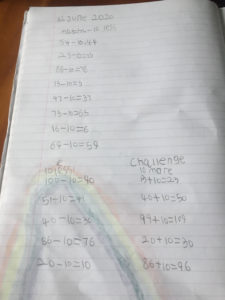 June 2020
10 less
54-10=44
13-10=3
47-10=37
73-10=63
16-10=6
69-10=59
10 less
100-10=90
51-10=41
40-10=30
86-10=76
20-10=10
Challenge
10 more
13+10=23
40+10=50
99+10=109
20+10=30
86+10=96